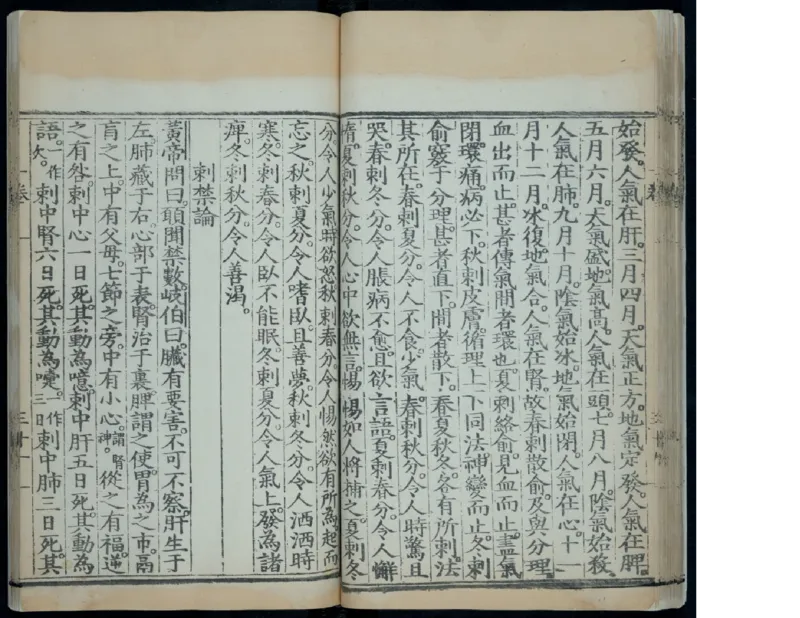 始發。人氣在肝。三月四月。天氣正方。地氣定發。人氣在脾。
五月六月。天氣盛。地氣高。人氣在頭。七月八月。陰氣始殺。
人氣在肺。九月十月。陰氣始冰。地氣始閉。人氣在心。十一
月十二月。冰復。地氣合。人氣在腎。故春刺散俞。及與分理。
血出而止。甚者傳氣。間者環也。夏刺絡俞。見血而止。盡氣
閉環。痛病必下。秋刺皮膚。循理。上下同法。神變而止。冬刺
俞竅于分理。甚者直下。間者散下。春夏秋冬。各有所刺。法
其所在。春刺夏分。令人不食。少氣。春刺秋分。令人時驚。且
哭。春刺冬分。令人脹。病不愈。且欲言語。夏刺春分。令人懈
惰。夏刺秋分。令人心中欲無言。惕惕如人將捕之。夏刺冬
分。令人少氣。時欲怒。秋刺春分。令人惕然。欲有所為。起而
忘之。秋刺夏分。令人嗜臥。且善夢。秋刺冬分。令人洒洒時
寒。冬刺春分。令人臥不能眠。冬刺夏分。令人氣上。發為諸
痺。冬刺秋分。令人善渴。
刺禁論
黃帝問曰。願聞禁數。岐伯曰。臟有要害。不可不察。肝生于
左。肺藏于右。心部于表。腎治于裏。脾謂之使。胃為之市。鬲
肓之上。中有父母。七節之旁。中有小心。謂腎神。從之有福。逆
之有咎。刺中心一日死。其動為噫。刺中肝五日死。其動為
語。一作欠。刺中腎六日死。其動為嚏。一作三日刺中肺三日死。其